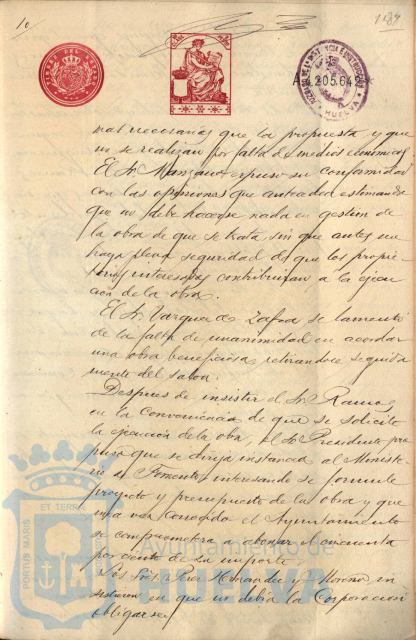 10
184
A 1,205,642
JUZGADO DE 1ª INSTANCIA É INSTRUCCIÓN
HUELVA
mas necesarias que la propuesta y que
no se realizan por falta de medios económicos.
El Sr. Manzano expuso su conformidad
con las opiniones que anteceden estimando
que no debe hacerse nada en gestión de
la obra de que se trata sin que antes no
haya plena seguridad de que los propie-
tarios interesados contribuirán a la ejecu-
ción de la obra.
El Sr. Vazquez de Zafra se lamentó
de la falta de unanimidad en acordar
una obra beneficiosa, retirándose seguida-
mente del salon.
Despues de insistir el Sr. Ramos
en la conveniencia de que se solicite
la ejecución de la obra, el Sr. Presidente pro-
puso que se dirija instancia al Ministe-
rio de Fomento, interesando se formule
proyecto y presupuesto de la obra y que
una vez conocido el Ayuntamiento
se comprometera a abonar el cincuenta
por ciento de su importe.
Los Sres. Perez Hernandez y Moreno in-
sistieron en que no debia la Corporación
obligarse
PORTUS MARIS ET TERRAE
Ayuntamiento de
HUELVA